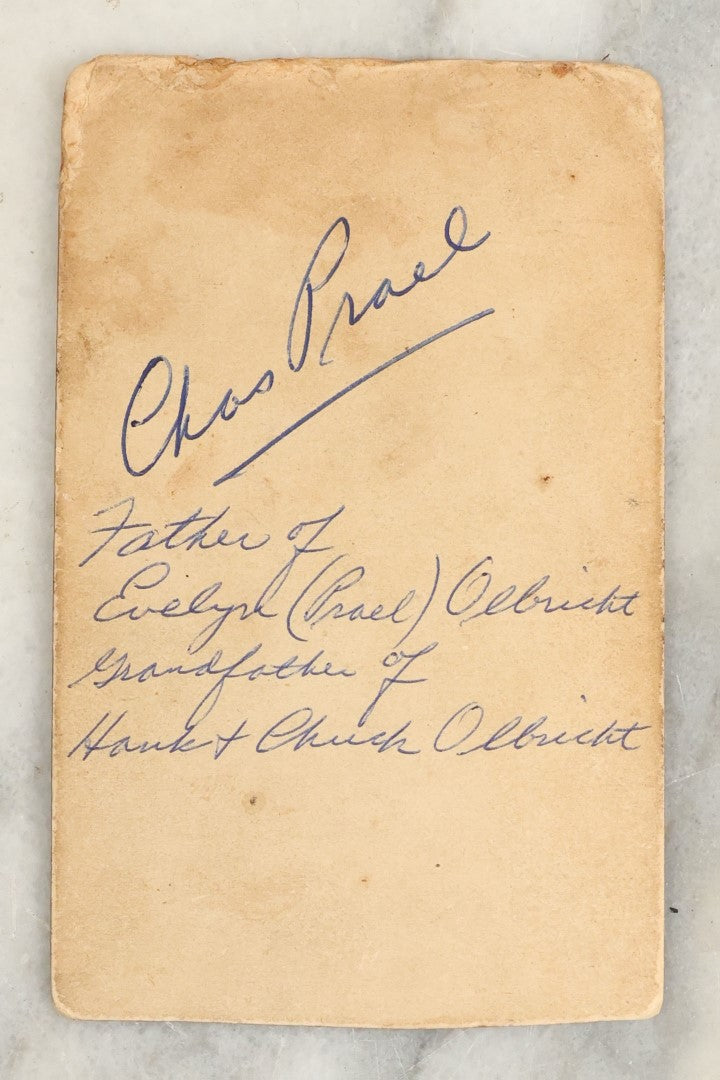 Chas Prael
Father of
Evelyn (Prael) Olbricht
Grandfather of
Hank + Chuck Olbricht